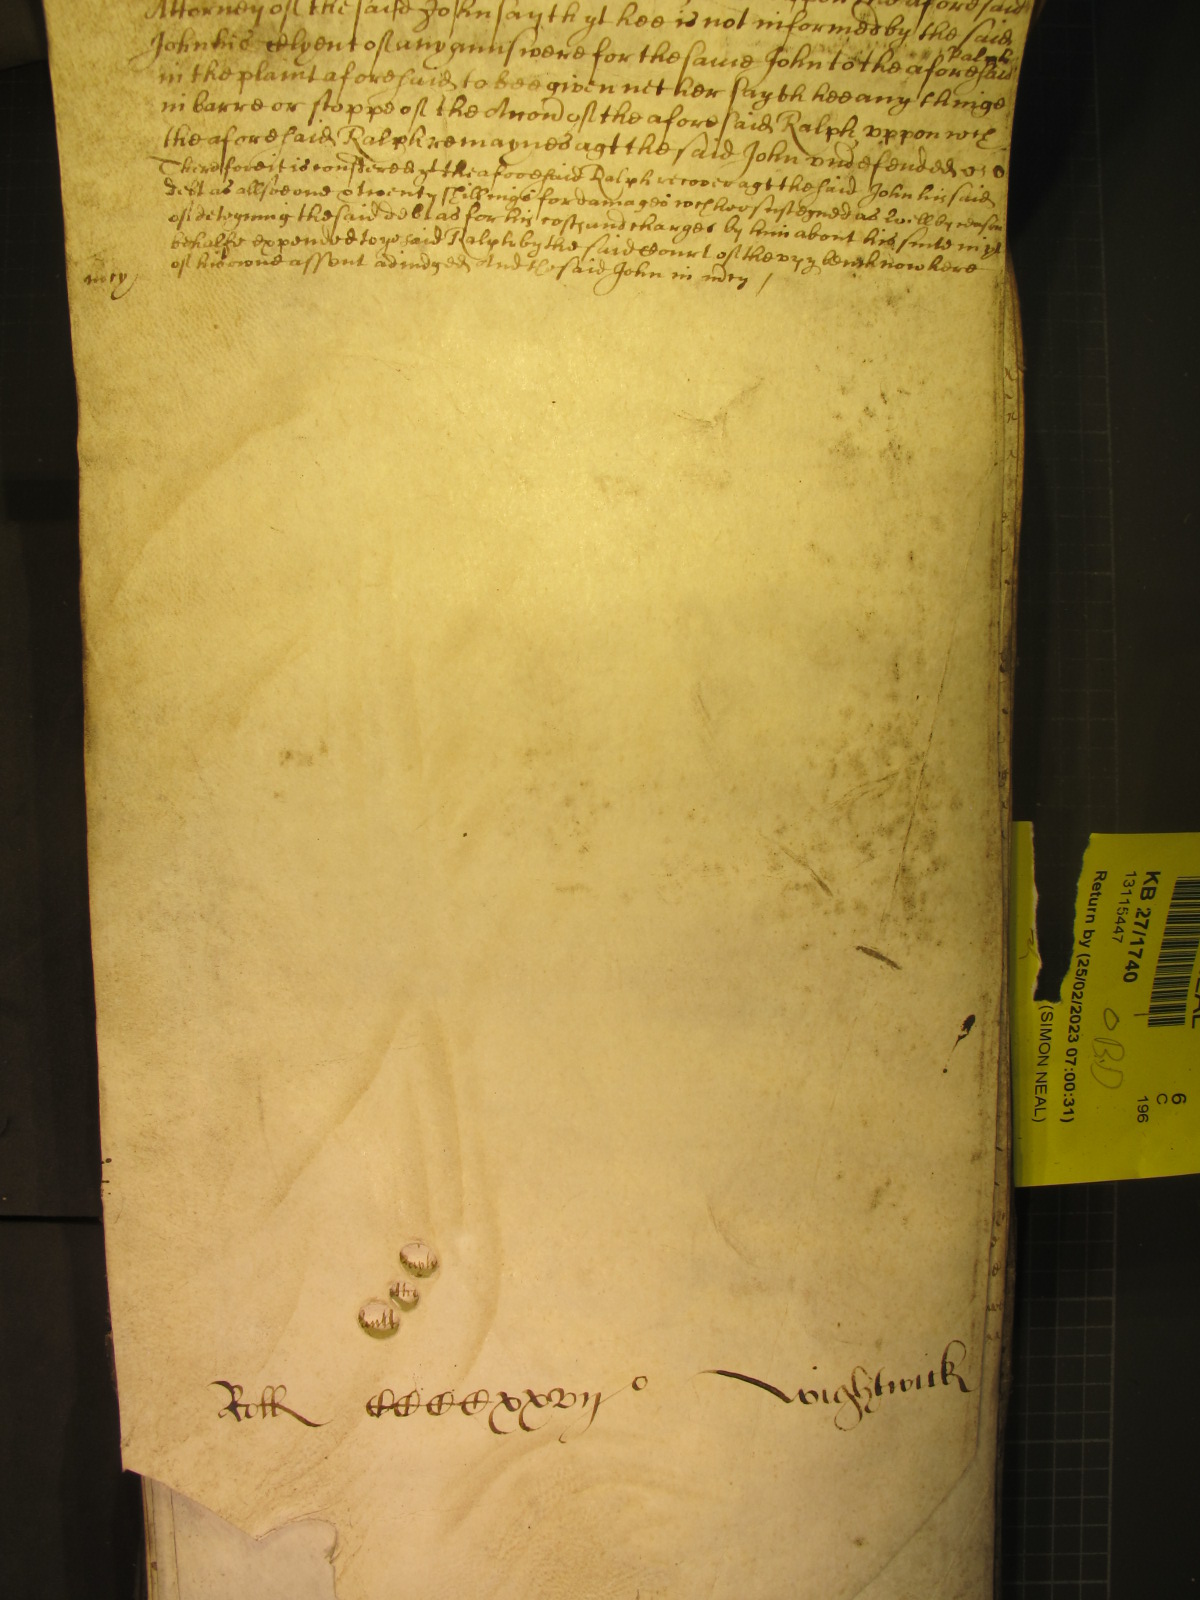 Attorney of the said John sayth yt hee is not informed by the said
John his Clyent of any answere for the same John to the aforesaid Ralph
in the plaint aforesaid to bee given net her sayth hee any thinge
in barre or stoppe of the Accon of the aforesaid Ralph vppon wch
the aforesaid Ralph remaynes agt the said John vndefended &c
Therefore it is considered yt the aforesaid Ralph recover agt the said John his said
debt as allsoe one & twenty shillings for damages wch hee susteyned as well by reason
of deteyning the said debt as for his costs and charges by him about his suite in yt
behalfe expended to ye said Ralph by the said Court of the vpp bench now here
of his owne assent adiudged And the said John in mcy /
mcy /
Roll CCCCxxvijo Wightwick
KB 27/1740
13115447
Return by (25/02/2023 07:00:31)
(SIMON NEAL)
6
C
196